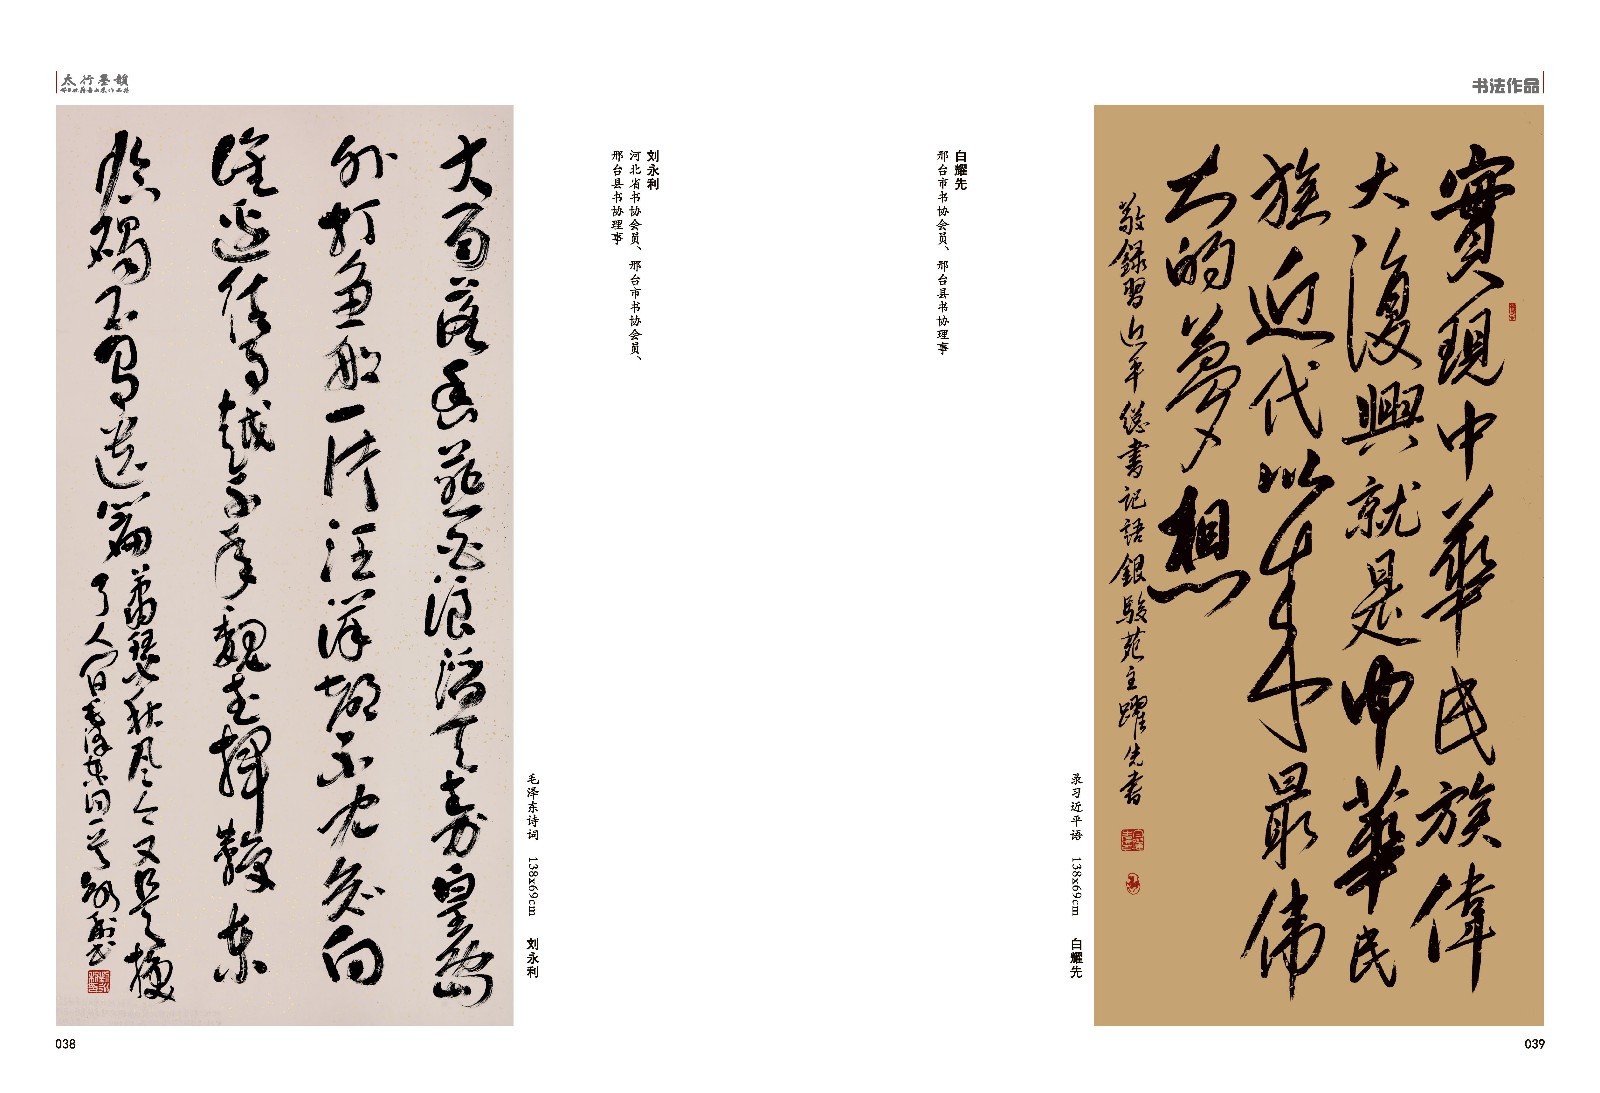 太行墨韻
大雨落幽燕白浪滔天秦皇岛
外打鱼船一片汪洋都不见知向
谁边往事越千年魏武挥鞭东
临碣石有遗篇萧瑟秋风今又是换
了人间毛泽东词一首永利书
毛泽东诗词 138x69cm 刘永利
刘永利
河北省书协会员、邢台市书协会员、
邢台县书协理事
038
书法作品
白耀先
邢台市书协会员、邢台县书协理事
實現中華民族偉
大復興就是中華民
族近代以来最伟
大的夢想
敬録習近平總書記語銀駿苑主躍先書
录习近平语 138x69cm 白耀先
039